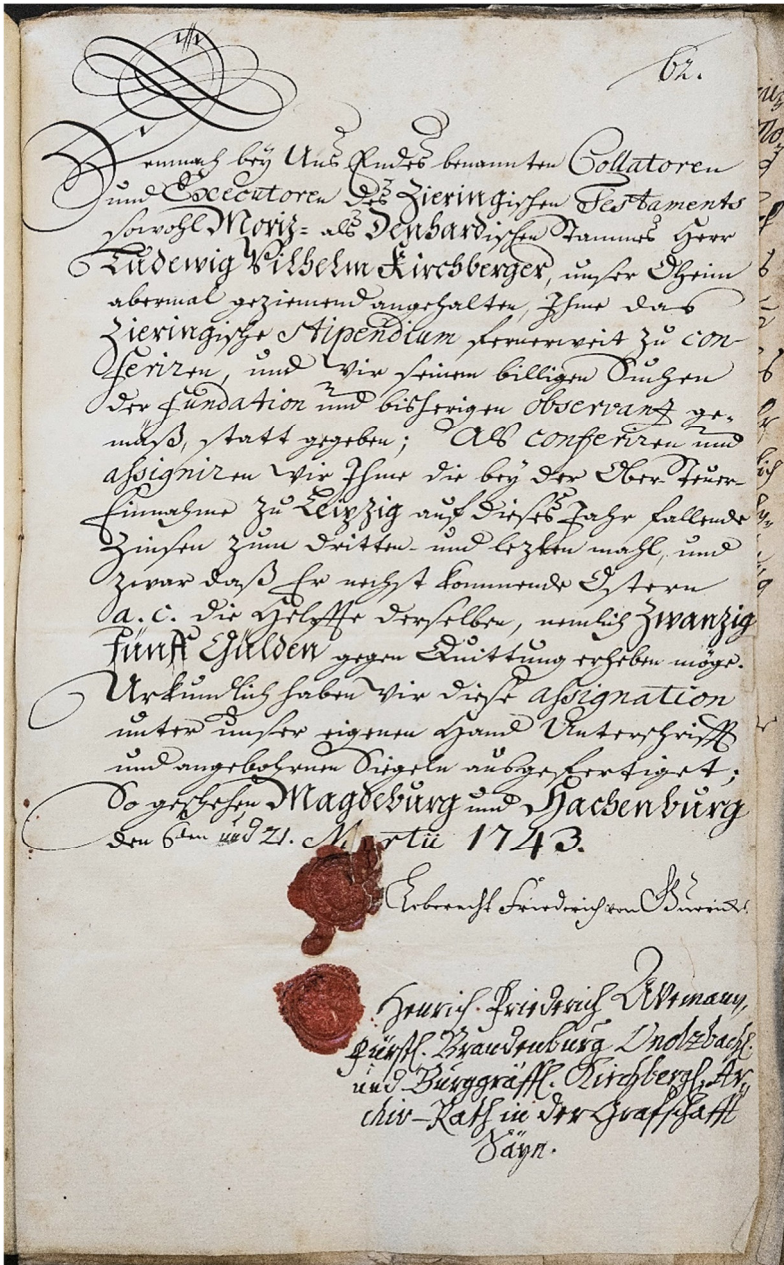 62.
Demnach bey Uns Endes benannten Collatoren
und Executoren des Zieringischen Testaments
sowohl Moriz- als Denhardischen Stammes Herr
Ludewig Wilhelm Kirchberger, unser Oheim
abermal geziemend angehalten, Ihme das
Zieringische Stipendium fernerweit zu con-
feriren, und Wir seinem billigen Suchen
der Fundation und bisherigen Observanz ge-
mäß, statt gegeben; Als conferiren und
assigniren Wir Ihme die bey der Ober-Steuer-
Einnahme zu Leipzig auf dieses Jahr fallende
Zinsen zum dritten- und lezten mahl, und
zwar daß Er nechst kommende Ostern
a. c. die Helffte derselben, nemlich Zwanzig
fünff Gülden gegen Quittung erheben möge.
Urkundlich haben Wir diese assignation
unter unser eigenen Hand Unterschrifft
und angebohrnen Siegeln ausgefertiget;
So geschehen Magdeburg und Hachenburg
den 6ten und 21. Martii 1743.
Leberecht Friederich von Guericke
Henrich Friederich Avemann,
Fürstl. Brandenburg Onolzbachl.
und Burggräffl. Kirchbergl. Ar-
chiv-Rath in der Grafschafft
Sayn.